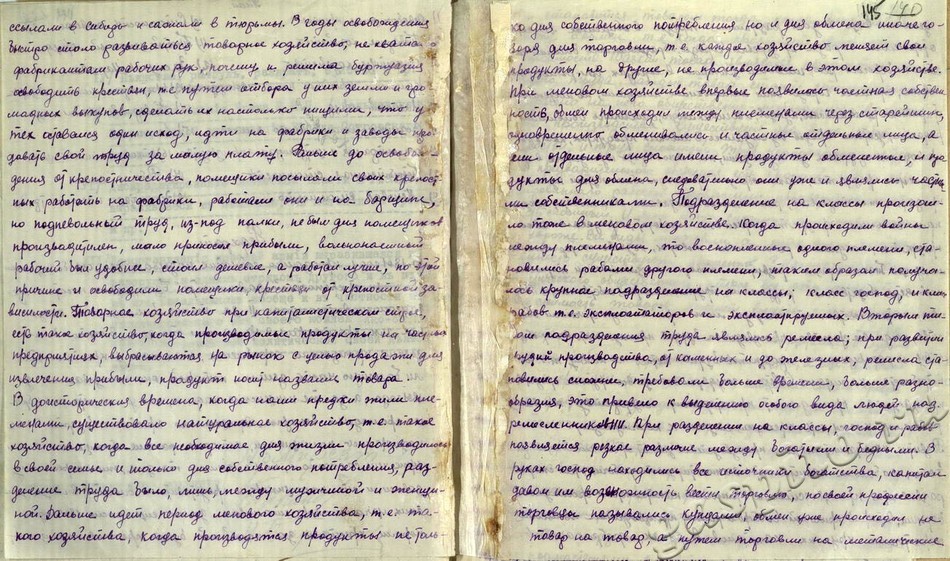 ссылали в Сибирь и сажали в тюрьмы. В годы освобождения
быстро стало развиваться товарное хозяйство, не хватало
фабрикантам рабочих рук, почему и решила буржуазия
освободить крестьян, т.е. путем отбора у них земли и гро-
мадных выкупов, сделать их настолько нищими, что у
тех оставался один исход, идти на фабрики и заводы про-
давать свой труд за малую плату. Раньше до освобож-
дения от крепостничества, помещики посылали своих крепост-
ных работать на фабрики, работали они и на барщине,
но подневольный труд, из-под палки, не был для помещиков
производителен, мало приносил прибыли, вольнонаемный
рабочий был удобнее, стоил дешевле, а работал лучше, по этой
причине и освободили помещики крестьян от крепостной за-
висимости. Товарное хозяйство при капиталистическом строе,
есть такое хозяйство, когда производимые продукты на частных
предприятиях, выбрасываются на рынок с целью продажи для
извлечения прибыли, продукт носит название товара
В доисторические времена, когда наши предки жили пле-
менами, существовало натуральное хозяйство, т.е. такое
хозяйство, когда все необходимое для жизни производилось
в своей семье и только для собственного потребления, раз-
деление труда было, лишь, между мужчиной и женщи-
ной. Дальше идет период менового хозяйства, т.е. та-
кого хозяйства, когда производятся продукты не толь-
145 140
ко для собственного потребления но и для обмена иначе го-
воря для торговли, т.е. каждое хозяйство меняет свои
продукты, на другие, не производимые в этом хозяйстве.
При меновом хозяйстве впервые появилась частная собствен-
ность, обмен происходил между племенами через старейшин,
одновременно обменивались и частные отдельные лица, а
если отдельные лица имели продукты обмененные, и про-
дукты для обмена, следовательно они уже и являлись частны-
ми собственниками. Подразделение на классы произош-
ло тоже в меновом хозяйстве. Когда происходили войны
между племенами, то военнопленные одного племени, ста-
новились рабами другого племени, таким образом получа-
лось крупное подразделение на классы; класс господ, и класс
рабов т.е. эксплоататоров и эксплоатируемых. Вторым ти-
пом подразделения труда являлись ремесла; при развитии
орудий производства, от каменных и до железных, ремесла ста-
новились сложнее, требовали больше времени, больше разно-
образия, это привело к выделению особого вида людей под
ремесленников. При разделении на классы, господ и рабов
появляется резкое различие между богатыми и бедными. В
руках господ находились все источники богатства, капитал
давал им возможность вести торговлю, по своей профессии
торговцы назывались купцами, обмен уже происходил не
товар на товар, а путем торговли на металлические